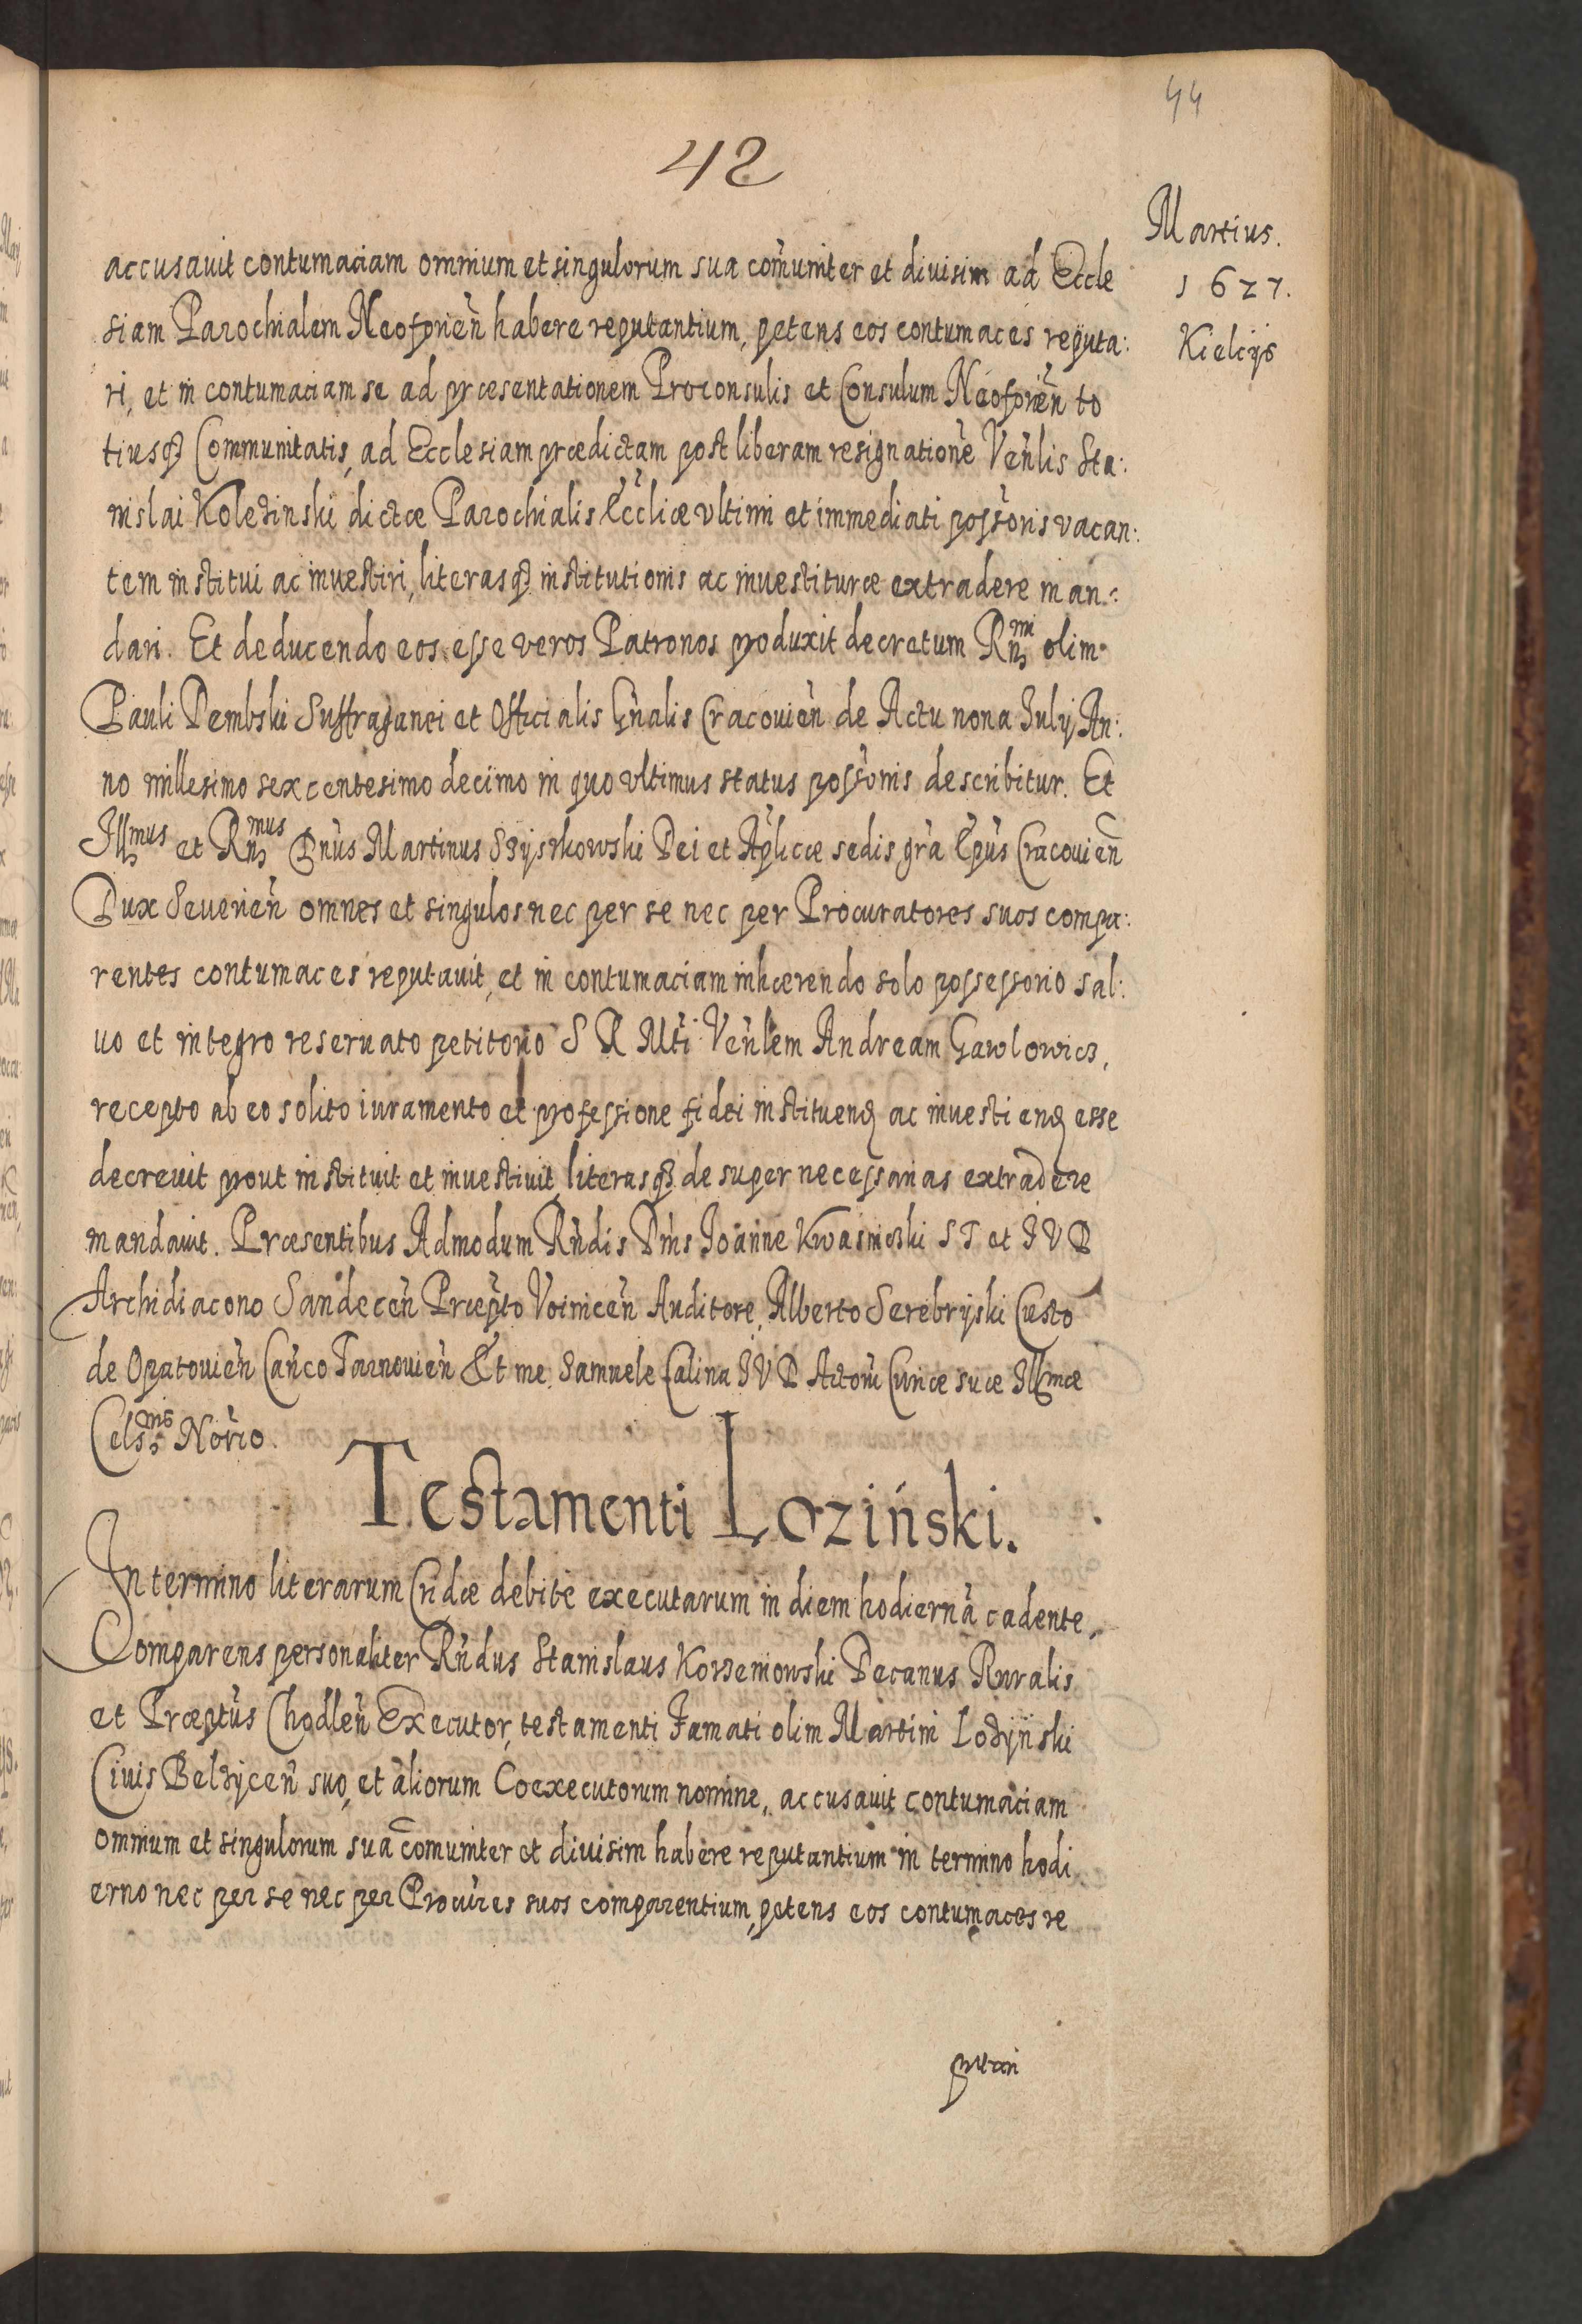 44
42
Martius.
1627.
Kielcijs
accusauit contumaciam omnium et singulorum sua com̃uniter et diuisim ad Eccle
siam Parochialem Neoforien̄ habere reputantium, petens eos contumaces reputa:
ri, et in contumaciam se ad præsentationem Proconsulis et Consulum Neoforien̄ to
tiusq₃ Communitatis, ad Ecclesiam prædictam post liberam resignationē Ven̄lis Sta:
nislai Kolezinski dictæ Parochialis Ecc̄liæ vltimi et immediati possōris vacan:
tem institui ac inuestiri, literasq₃ institutionis ac inuestituræ extradere man:
dari. Et deducendo eos esse veros Patronos produxit decretum Rn̄mi olim
Pauli Dembski Suffraganei et Officialis Gn̄alis Cracouien̄ de Actu nona Iulij An:
no millesimo sexcentesimo decimo in quo vltimus status possōnis describitur. Et
Illmus et Rn̄mus Dn̄us Martinus Szyszkowski Dei et Ap̄licæ sedis gr̄a Ep̄us Cracouien̄
Dux Seuerien̄ omnes et singulos nec per se nec per Procuratores suos compa:
rentes contumaces reputauit, et in contumaciam inhærendo solo possessorio sal:
uo et integro reseruato petitorio S R Mti Ven̄lem Andream Gawlowicz,
recepto ab eo solito iuramento et professione fidei instituend ac inuestiend esse
decreuit prout instituit et inuestiuit, literasq₃ desuper necessarias extradere
mandauit. Præsentibus Admodum Rn̄dis Dn̄is Ioan̄ne Kwasnicski S T et I V D
Archidiacono Sandecen̄ Præp̄to Voinicen̄ Auditore, Alberto Serebryski Custo
de Opatouien̄ Can̄co Tarnouien̄ Et me Samuele Calina I V D Actorū Curiæ suæ Illmæ
Celsnis Nōrio.
Testamenti Loziński.
In termino literarum Cridæ debitè executarum in diem hodiernā cadente,
Comparens personaliter Rn̄dus Stanislaus Korzeniowski Decanus Ruralis
et Præptūs Chodlen̄ Executor, testamenti Famati olim Martini Lozynski
Ciuis Belzycen̄ suo, et aliorum Coexecutorum nomine, accusauit contumaciam
omnium et singulorum sua com̄uniter et diuisim habere reputantium in termino hodi
erno nec per se nec per Procūres suos comparentium, petens eos contumaces re
putari